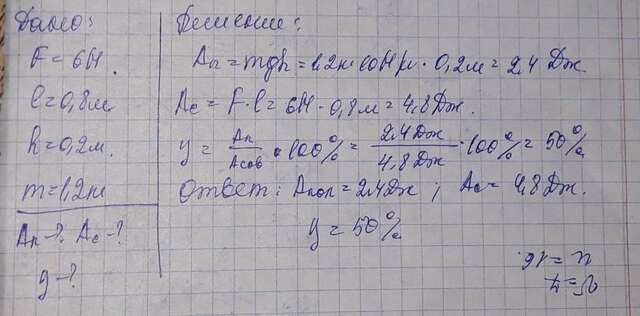 Дано:
F = 6Н.
l = 0,8м
h = 0,2м.
m = 1,2кг
Ап -? Ас -?
y -?
Решение:
Ап = mgh = 1,2кг·10Н/кг · 0,2м = 2,4 Дж.
Ас = F·l = 6Н · 0,8м = 4,8Дж.
y = Ап/Асов · 100% = 2,4Дж/4,8Дж · 100% = 50%
Ответ: Апол = 2,4Дж; Ас = 4,8Дж.
y = 50%